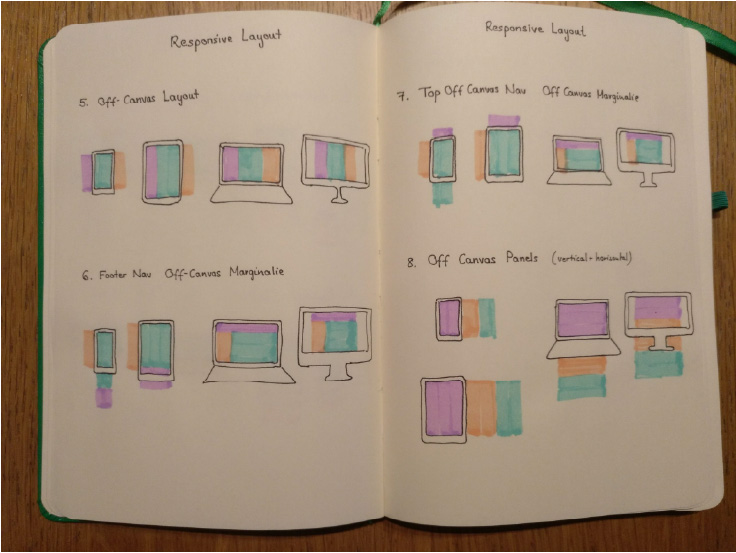 Responsive Layout
5. Off-Canvas Layout
6. Footer Nav Off-Canvas Marginalie
Responsive Layout
7. Top Off Canvas Nav Off Canvas Marginalie
8. Off Canvas Panels (vertical + horizontal)